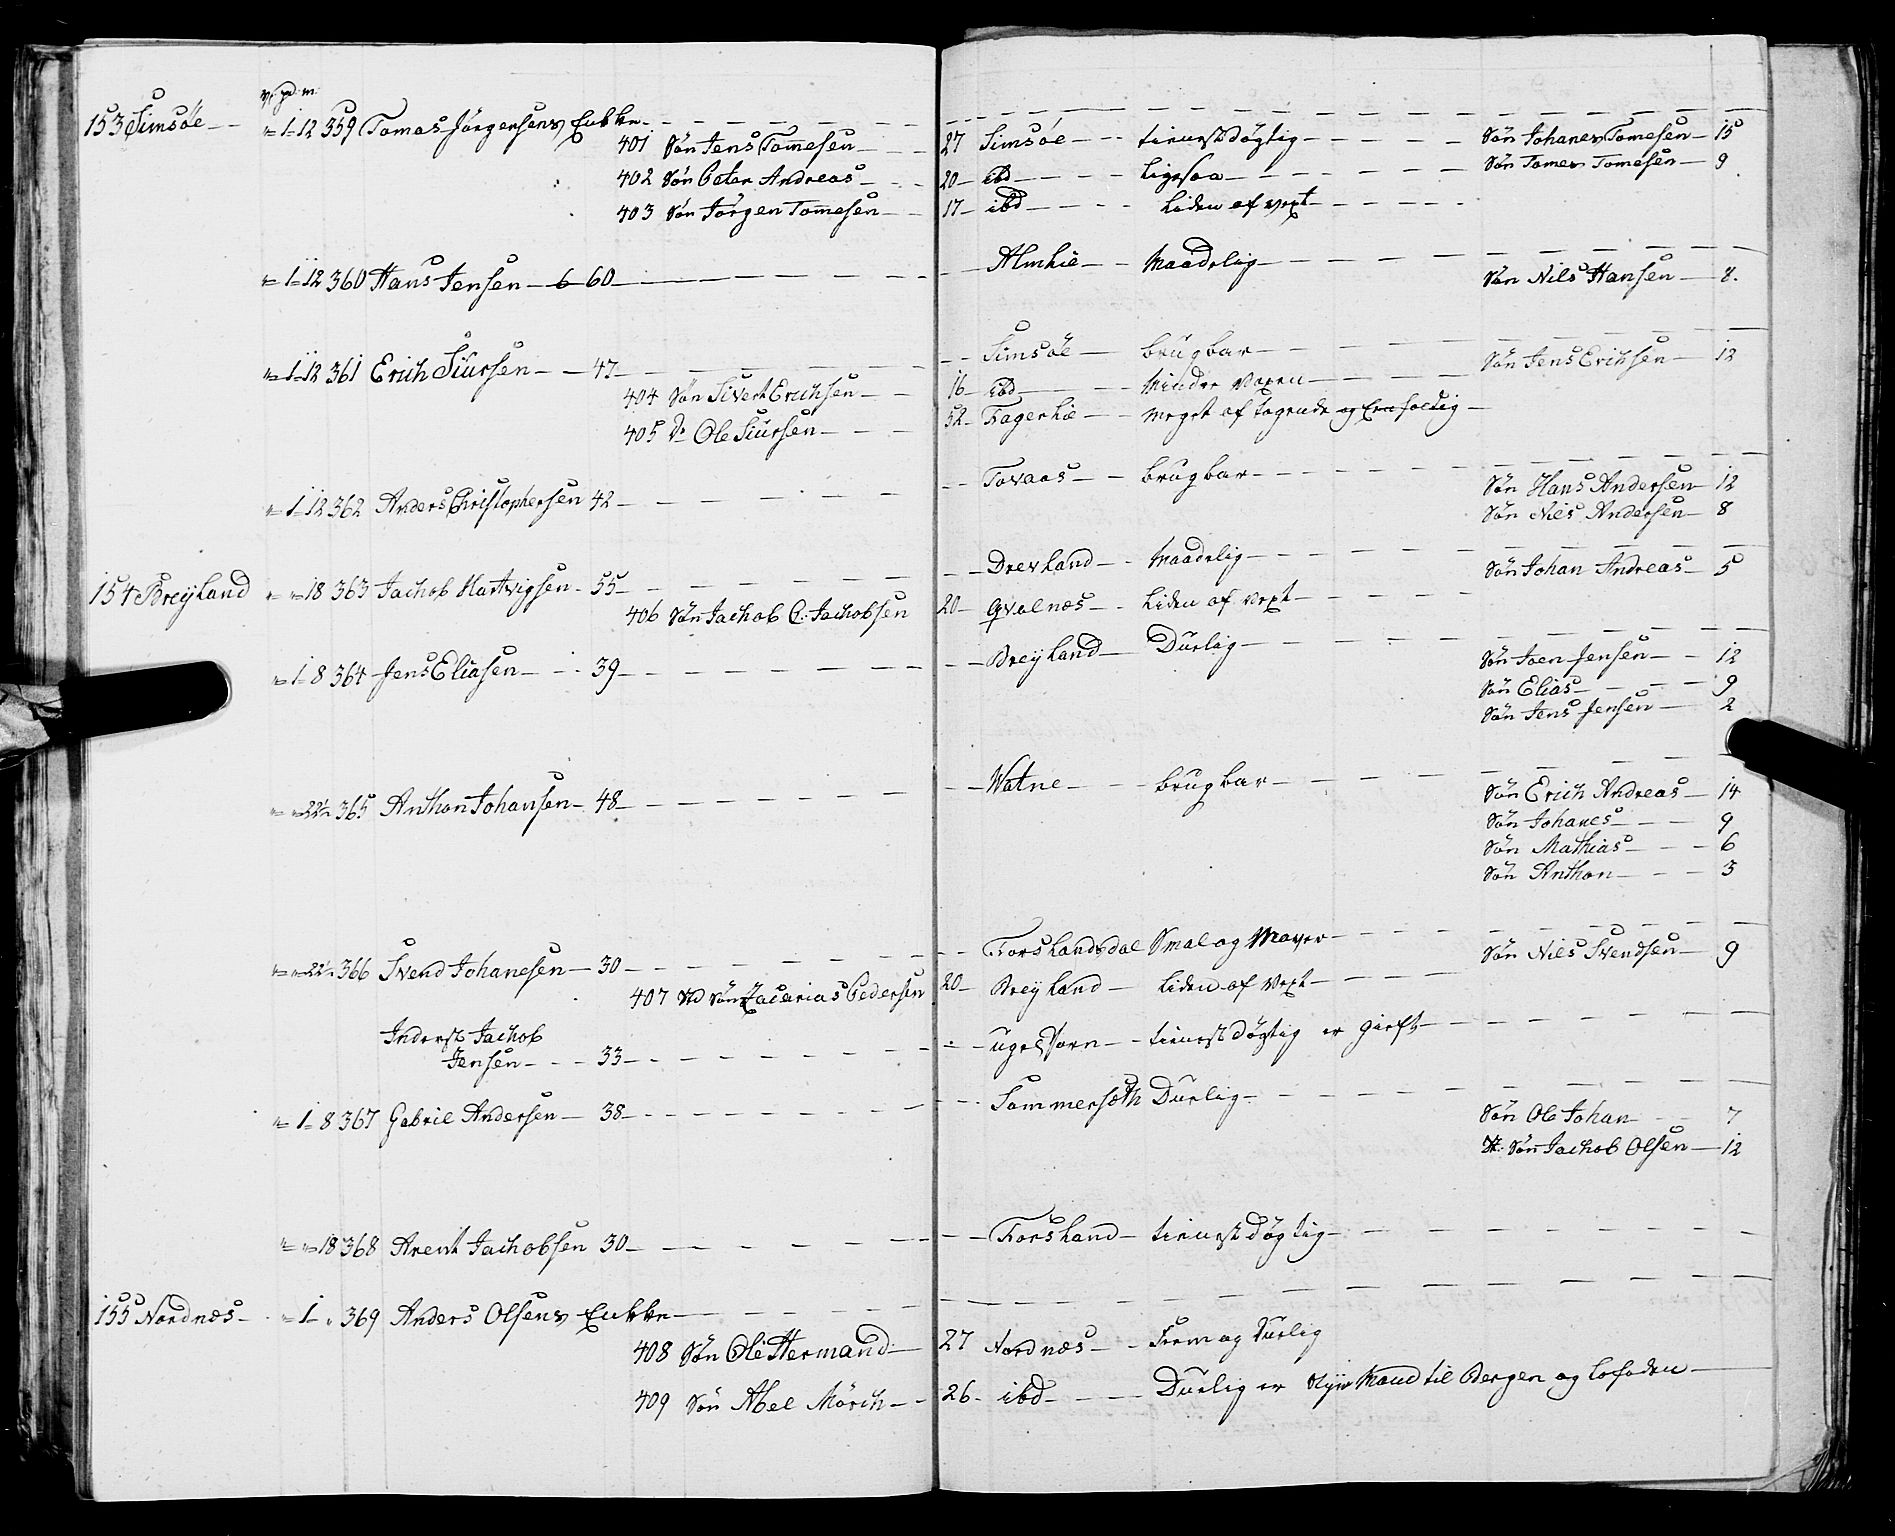 v: pd: m:
153 Simsøe — „ 1 12 359 Tomas Jørgensens Enkke
401 Søn Jens Tomesen — 27 Simsøe — tienestdøgtig — Søn Johanes Tomesen — 15
402 Søn Peter Andreas — 20 — ibd — ligesaa — Søn Tomes Tomesen — 9
403 Søn Jørgen Tomesen — 17 — ibd — liden af vext
„ 1 12 360 Hans Jensen — 60 — Almlie — Maadelig — Søn Nils Hansen — 8
„ 1 12 361 Erich Siursen — 47 — Simsøe — brugbar — Søn Jens Erichsen — 12
404 Søn Sivert Erichsen — 16 — ibd — Mindre Voxen
405 Do Ole Siursen — 52 — Fagerlie — meget af tagende og Eenfoldig
„ 1 12 362 Anders Christophersen 42 — Tovaas — brugbar — Søn Hans Andersen — 12
Søn Niels Andersen — 8
154 Breyland „ „ 18 363 Jachob Hartvigsen — 55 — Drevland — Maadelig — Søn Johan Andreas — 5
406 Søn Jachob C: Jachobsen 20 — Qvalnæs — liden af vext
„ 1 8 364 Jens Eliasen — 39 — Breyland — Durlig — Søn Joen Jensen — 12
Søn Elias — 9
Søn Jens Jensen — 2
„ „ 22½ 365 Anthon Johansen — 48 — Watne — brugbar — Søn Erich Andreas — 14
Søn Johanes — 9
Søn Mathias — 6
Søn Anthon — 3
„ „ 22½ 366 Svend Johanesen — 30 — Forslandsdal Smal og Mager — Søn Niels Svendsen — 9
407 Søn Zacarias Pedersen 20 — Breyland — liden af vext
Inderst Jachob
Jensen — 33 — ugelstorn — tienestdøgtig er gieft
„ 1 8 367 Gabriel Andersen — 38 — Sommersæth Durlig — Søn Ole Johan — 7
St: Søn Jachob Olsen — 12
„ „ 18 368 Arent Jachobsen 30 — Forsland — tienestdøgtig
155 Nordnæs — „ 1 „ 369 Anders Olsens Enkke
408 Søn Ole Hermand — 27 Nordnæs — From og Durlig
409 Søn Abel Mörch — 26 — ibd — Durlig er Mand til Bergen og Lofoden